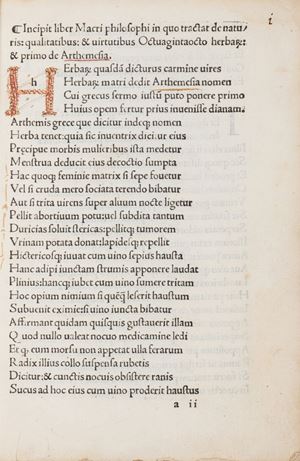 i
¶Incipit liber Macri philosophi in quo tractat de natu/
ris: qualitatibus: & uirtutibus Octuagintaocto herbaꝝ:
& primo de Arthemesia.
H h Erbaꝝ quasdā dicturus carmine uires
Herbaꝝ matri dedit Arthemesia nomen
Cui grecus sermo iustū puto ponere primo
Huius opem fertur prius inuenisse dianam.
Arthemis grece que dicitur indeqꝫ nomen
Herba tenet: quia sic inuentrix dicit eius
Precipue morbis muliebribus ista medetur
Menstrua deducit eius decoctio sumpta
Hac quoqꝫ feminie matrix si sepe fouetur
Vel si cruda mero sociata terendo bibatur
Aut si trita uirens super aluum nocte ligetur
Pellit abortiuum potu: uel subdita tantum
Duricias soluit stericas: pellitqꝫ tumorem
Vrinam potata donat: lapideqꝫ repellit
Hictericos iuuat cum uino sepius hausta
Hanc adipi iunctam strumis apponere laudat
Plinius: hancqꝫ iubet cum uino sumere tritam
Hoc opium nimium si quēqꝫ leserit haustum
Subuenit eximie: si uino iuncta bibatur
Affirmant quidam quisquis gustauerit illam
Quod nullo ualeat nocuo medicamine ledi
Et qꝫ eum morsu non appetat ulla ferarum
Radix illius collo suspensa rubetis
Dicitur: & cunctis nocuis obsistere ranis
Sucus ad hoc eius cum uino proderit haustus
a ii